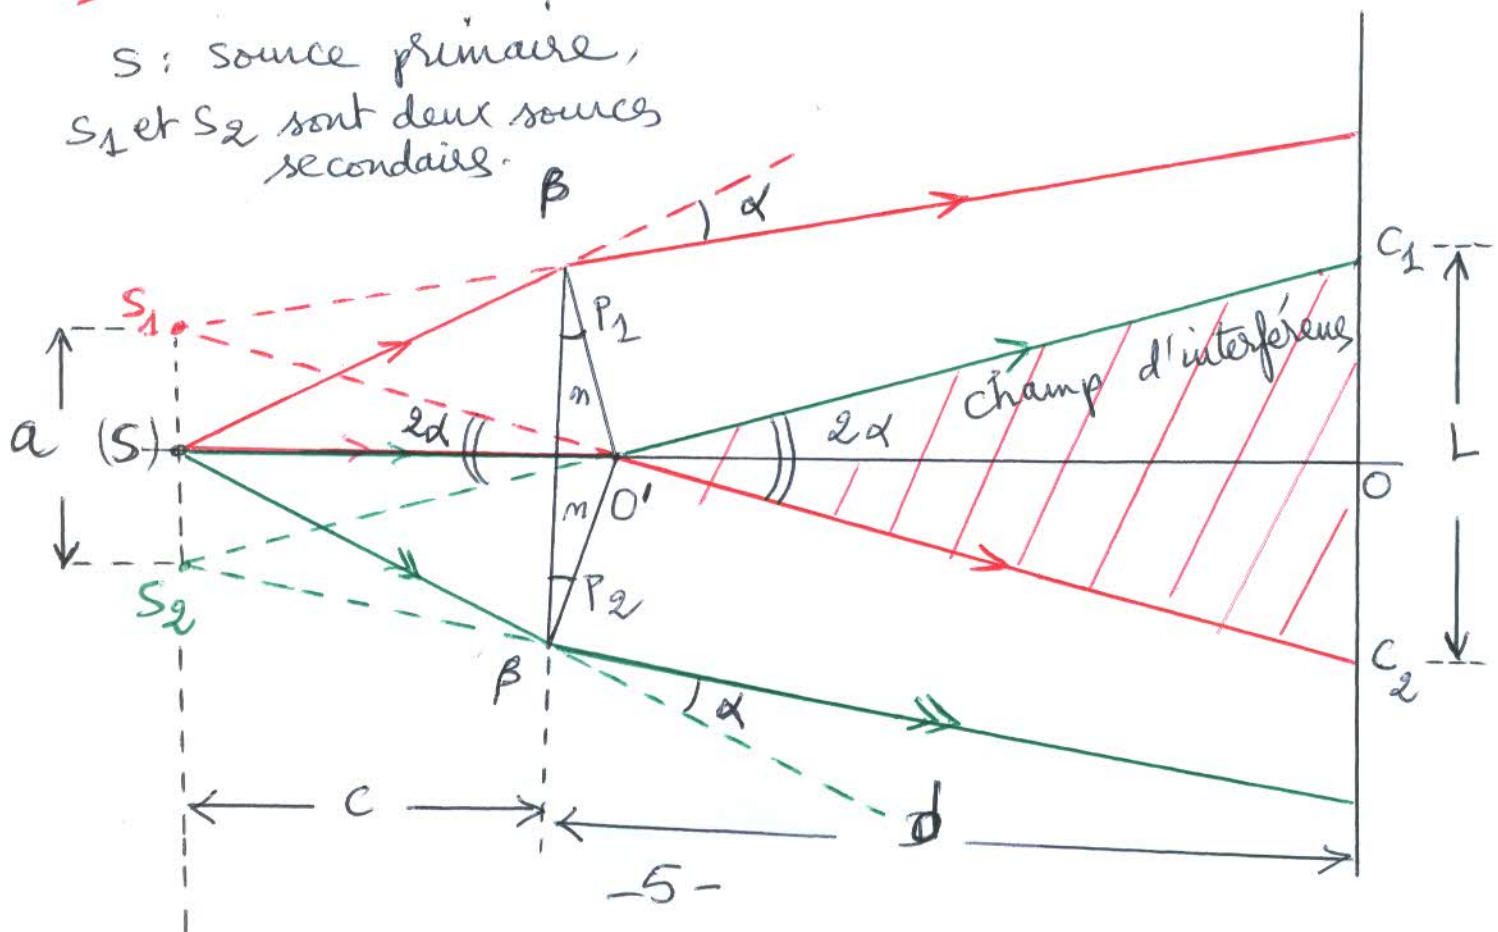 S : source primaire,
S1 et S2 sont deux sources
secondaires.
β
α
C1
S1
P1
champ d'interférences
n
a
(S)
2α
2α
L
n
O'
O
S2
P2
C2
β
α
c
d
-5-